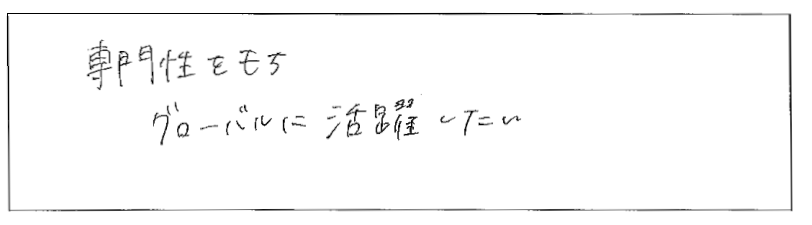 専門性をもち
グローバルに活躍したい